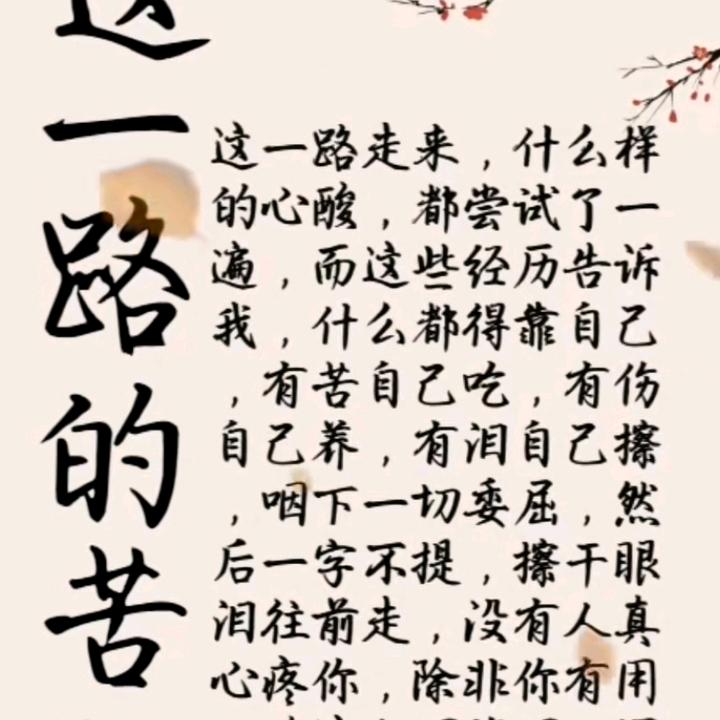 这一路的苦
这一路走来，什么样
的心酸，都尝试了一
遍，而这些经历告诉
我，什么都得靠自己
，有苦自己吃，有伤
自己养，有泪自己擦
，咽下一切委屈，然
后一字不提，擦干眼
泪往前走，没有人真
心疼你，除非你有用